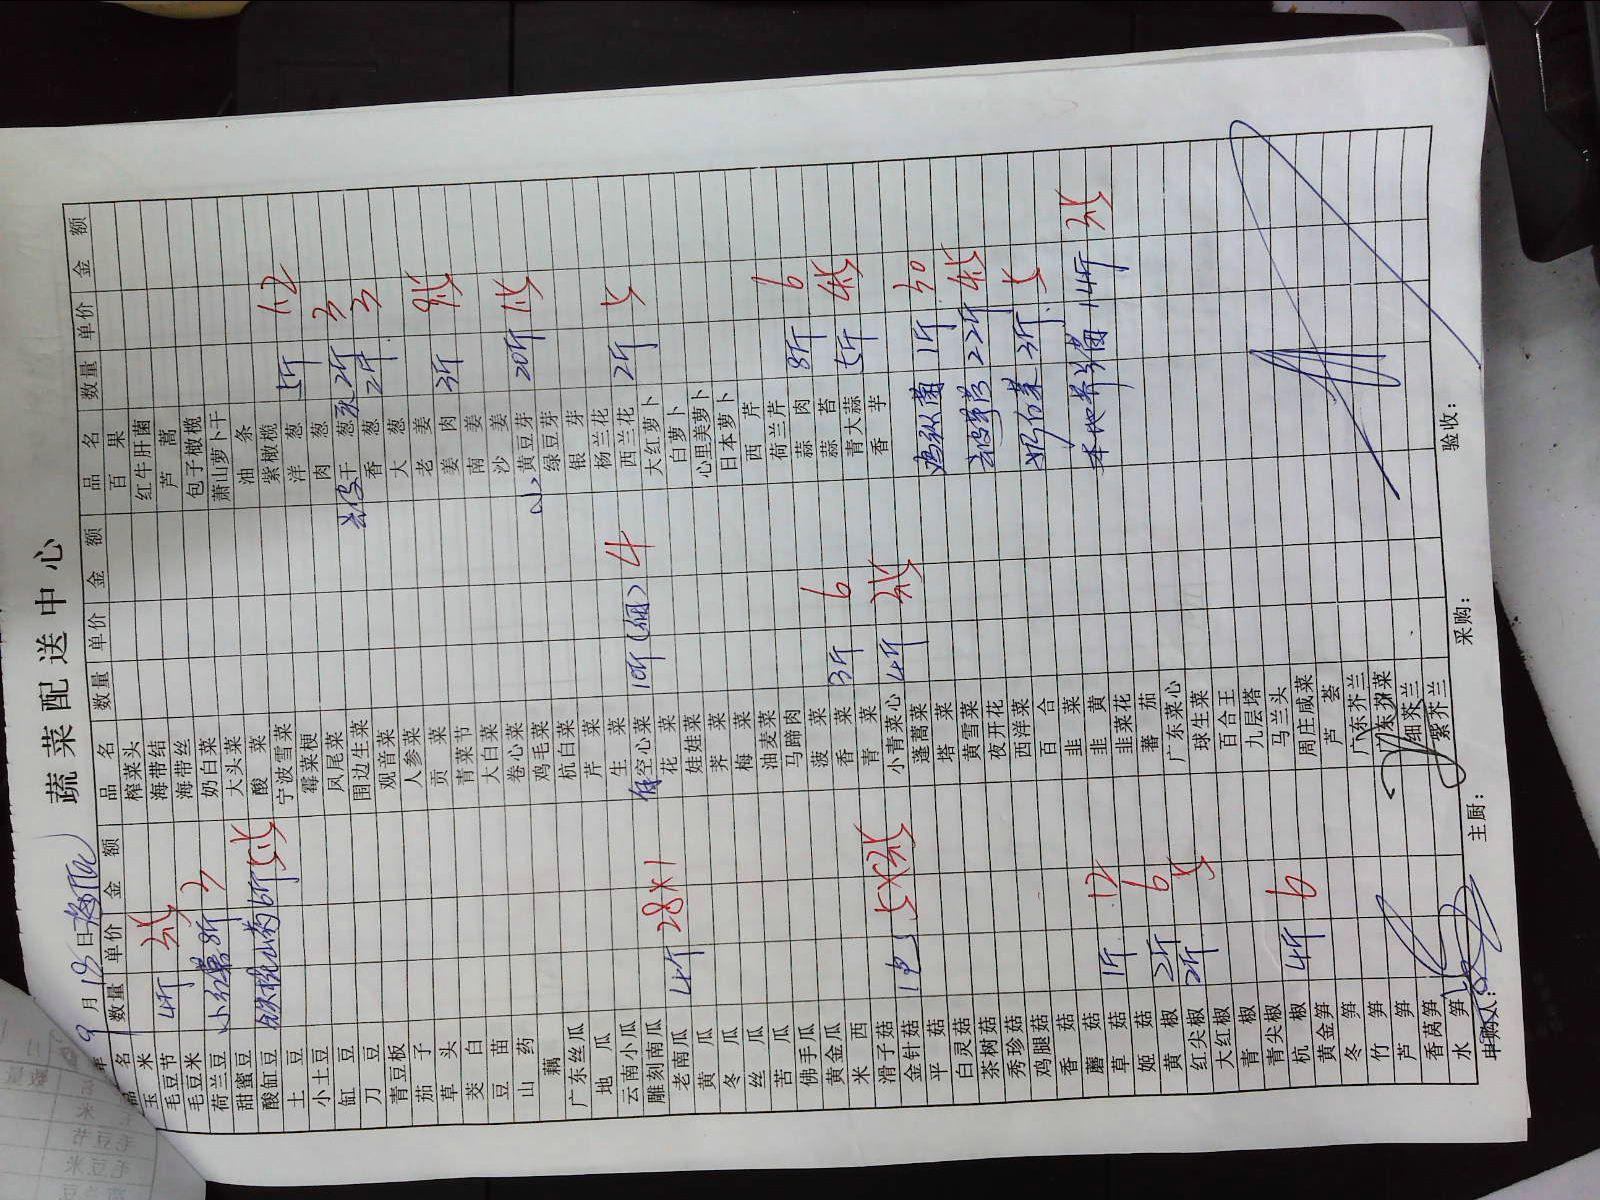 蔬菜配送中心
年 9月18日
品名 数量 单价 金额 品名 数量 单价 金额 品名 数量 单价 金额
玉米 榨菜头 百果
毛豆节 4斤 海带结 红牛肝菌
毛豆米 海带丝 芦蒿
荷兰豆 小红薯 8斤 3 奶白菜 包子橄榄
甜蜜豆 大头菜 萧山萝卜干
酸缸豆 铁棍山药 6斤 酸菜 油条
土豆 宁波雪菜 紫橄榄
小土豆 霉菜梗 洋葱 5斤 1.2
缸豆 凤尾菜 肉葱 3
刀豆 围边生菜 干葱 2斤 3
青豆板 观音菜 香葱 2斤
茄子 人参菜 大葱
草头 贡菜 老姜
茭白 青菜节 姜肉 3斤
豆苗 大白菜 南姜
山药 卷心菜 沙姜
藕 鸡毛菜 黄豆芽 20斤
广东丝瓜 杭白菜 绿豆芽
地瓜 芹菜 银芽
云南小瓜 生菜 杨兰花
雕刻南瓜 空心菜 10斤(细) 4 西兰花 2斤 5
老南瓜 4斤 28×1 花菜 大红萝卜
黄瓜 娃娃菜 白萝卜
冬瓜 荠菜 心里美萝卜
丝瓜 梅菜 日本萝卜
苦瓜 油麦菜 西芹
佛手瓜 马蹄肉 荷兰芹
黄金瓜 菠菜 蒜肉 8斤 6
米西 香菜 3斤 6 蒜苔
滑子菇 青菜 青大蒜 5斤
金针菇 1包 小青菜心 4斤 香芋
平菇 蓬蒿菜 鸡枞菌 1斤 30
白灵菇 塔菜
茶树菇 黄雪菜 22斤
秀珍菇 夜开花
鸡腿菇 西洋菜 奶白菜 3斤 5
香菇 百合
蘑菇 1斤 12 韭菜 14斤
草菇 韭黄
姬菇 2斤 6 韭菜花
黄椒 2斤 5 蕃茄
红尖椒 广东菜心
大红椒 球生菜
青椒 百合王
青尖椒 九层塔
杭椒 4斤 6 马兰头
黄金笋 周庄咸菜
冬笋 芦荟
竹笋 广东芥兰
芦笋 广东芥菜
香莴笋 细芥兰
水笋 紫芥兰
申购人： 主厨： 采购： 验收：